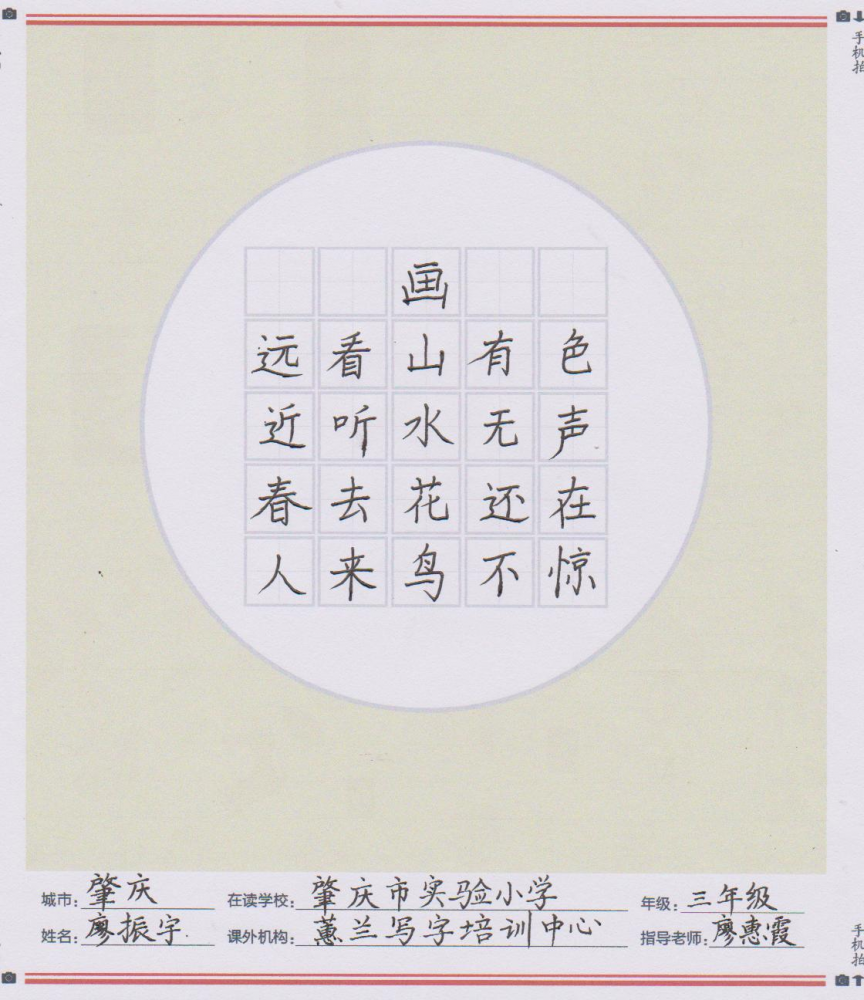 手机拍
画
远看山有色
近听水无声
春去花还在
人来鸟不惊
城市：肇庆 在读学校：肇庆市实验小学 年级：三年级
姓名：廖振宇 课外机构：蕙兰写字培训中心 指导老师：廖惠霞
手机拍